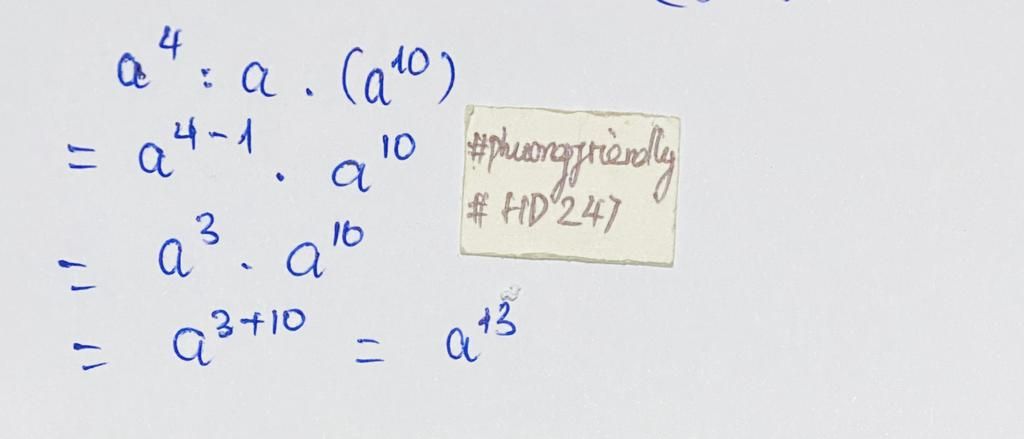 a⁴ : a . (a¹⁰)
= a⁴⁻¹ . a¹⁰
= a³ . a¹⁰
= a³⁺¹⁰ = a¹³
#phuongfriendly
# HD 247